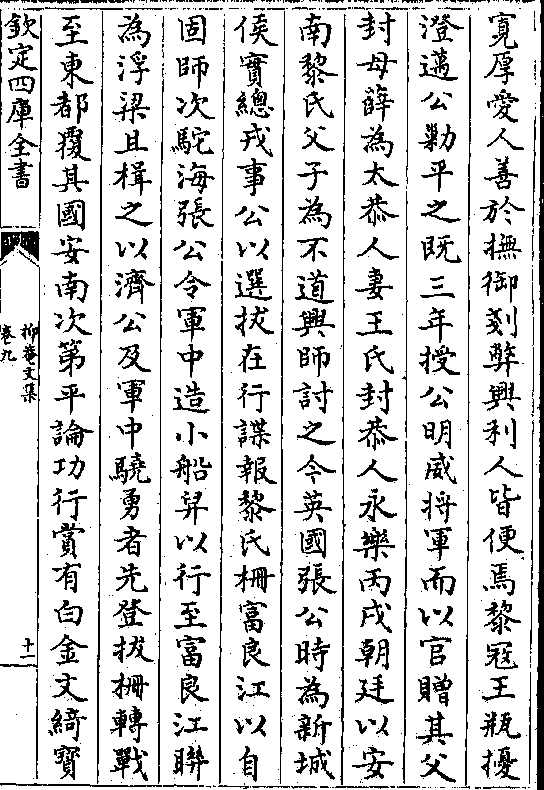 寛厚愛人善於撫御刻弊興利人皆便焉黎冦王瓶擾
澄邁公勦平之既三年授公明威將軍而以官贈其父
封母薛為太恭人妻王氏封恭人永樂丙戌朝廷以安
南黎氏父子為不道興師討之今英國張公時為新城
侯實總戎事公以選拔在行諜報黎氏柵富良江以自
固師次駝海張公令軍中造小船舁以行至富良江聯
為浮梁且楫之以濟公及軍中驍勇者先登拔柵轉戰
至東都覆其國安南次第平論功行賞有白金文綺寳
欽定四庫全書
抑菴文集
卷九
十二